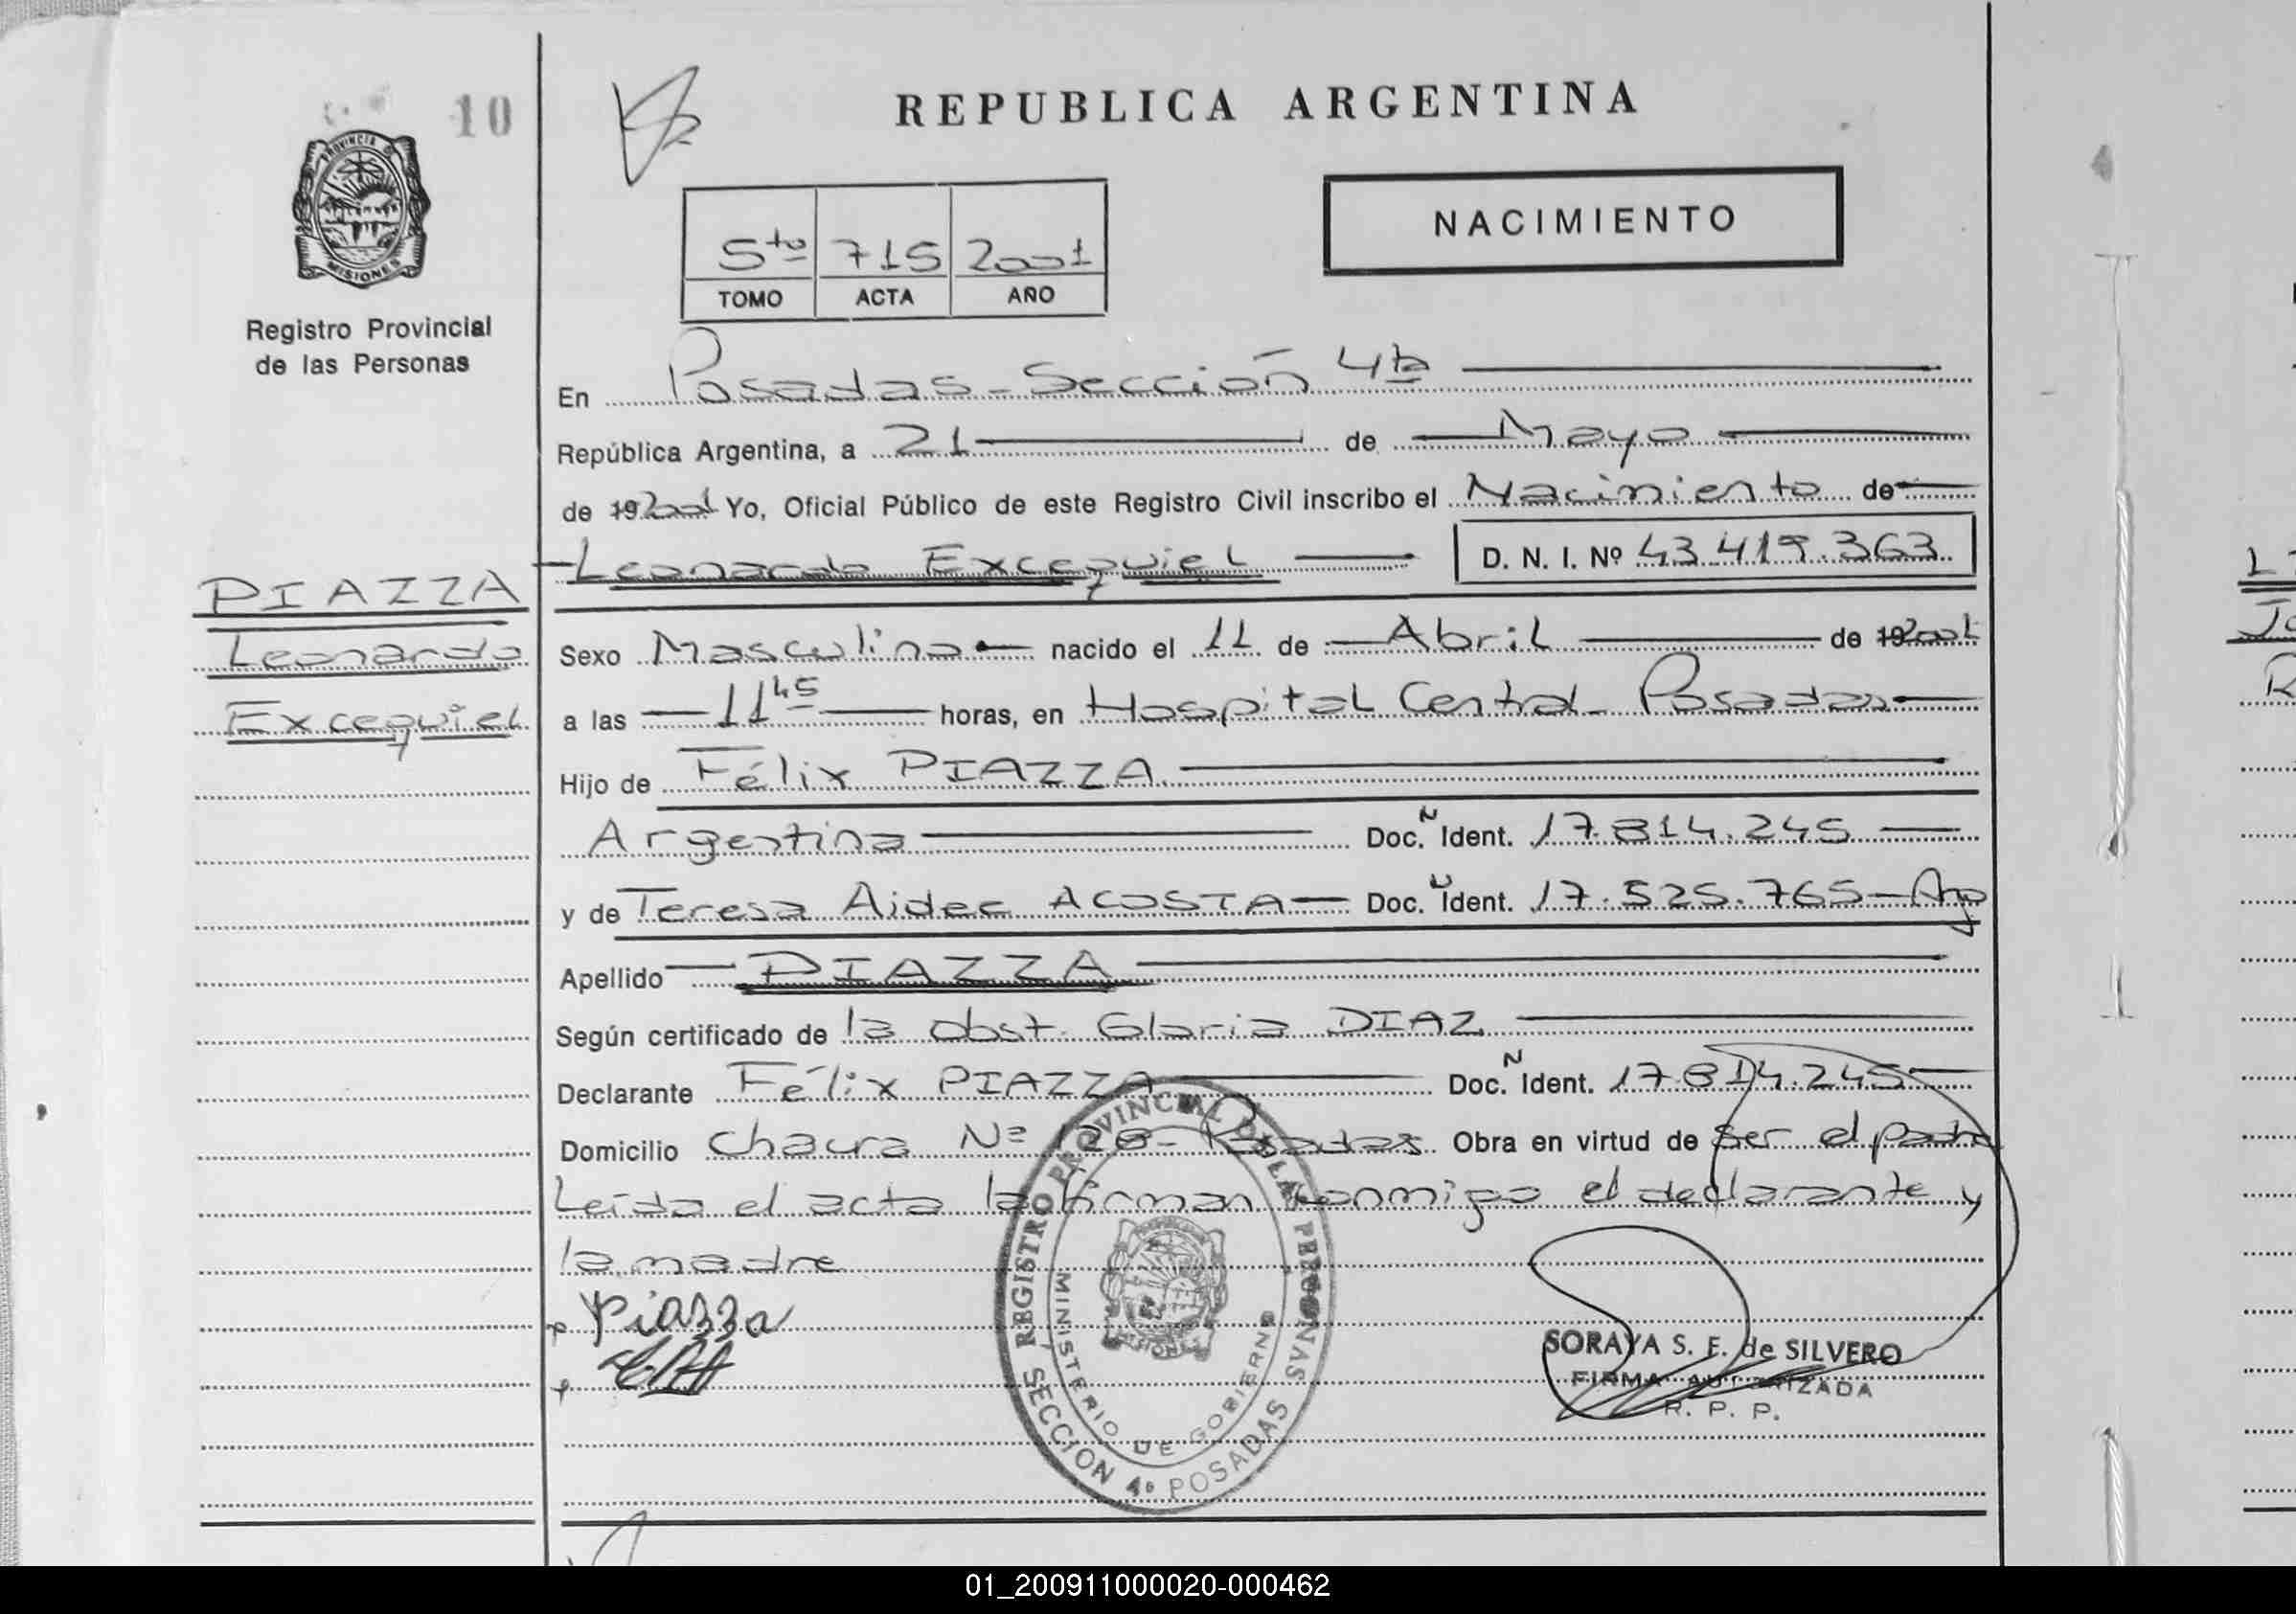 10
REPUBLICA ARGENTINA
PROVINCIA D
MISIONES
Registro Provincial
de las Personas
5to 715 2001
TOMO ACTA AÑO
NACIMIENTO
En Posadas - Sección 4ta
República Argentina, a 21 de Mayo
de 19 2001 Yo, Oficial Público de este Registro Civil inscribo el Nacimiento de
Leonardo Excequiel D. N. I. Nº 43.419.363
PIAZZA
Leonardo
Excequiel
Sexo Masculino nacido el 11 de Abril de 19 2001
a las 11 45 horas, en Hospital Central - Posadas
Hijo de Félix PIAZZA
Argentina Doc. N Ident. 17.814.245
y de Teresa Aidee ACOSTA Doc. Ident. 17.525.765 - Arg
Apellido PIAZZA
Según certificado de la obst. Gloria DIAZ
Declarante Félix PIAZZA Doc. N Ident. 17.814.245
Domicilio Chacra Nº 128 - Posadas Obra en virtud de ser el padre
Leída el acta la firman conmigo el declarante y
la madre
Piazza
REGISTRO PROVINCIAL DE LAS PERSONAS
MINISTERIO DE GOBIERNO
SECCION 4º POSADAS
SORAYA S. E. de SILVERO
FIRMA AUTORIZADA
R. P. P.
01_200911000020-000462